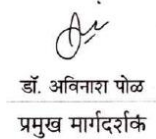 डॉ. अविनाश पोळ
प्रमुख मार्गदर्शक